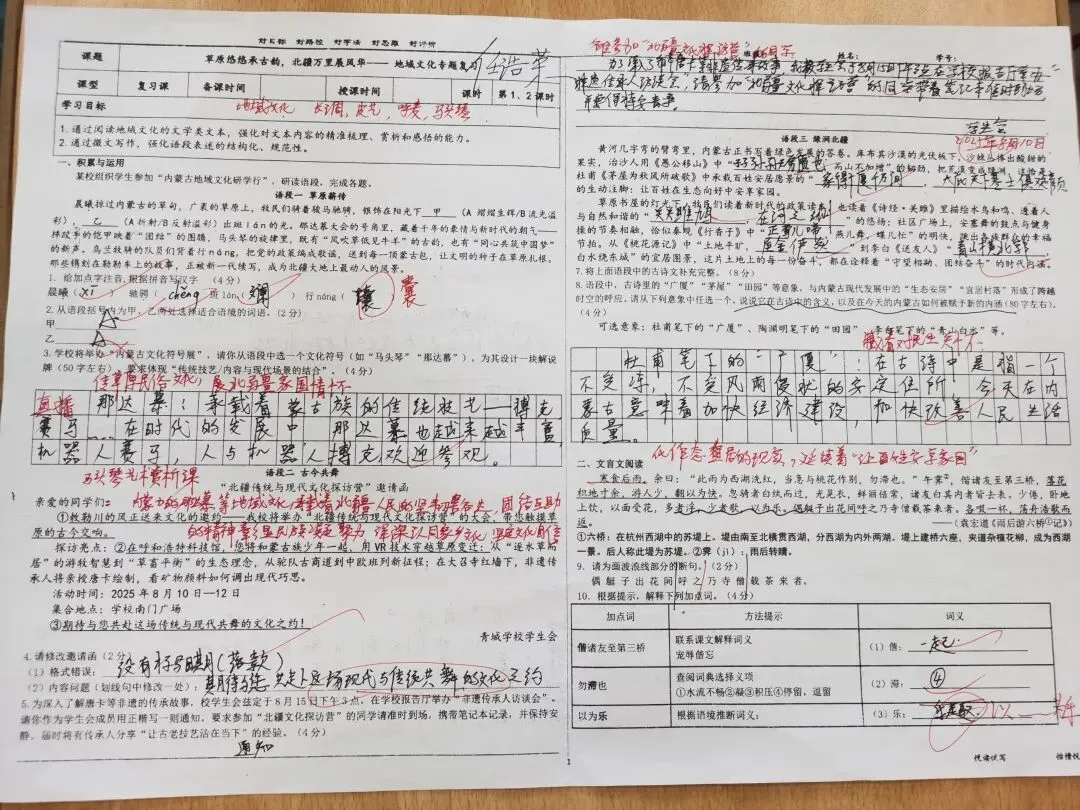 好目标 好路径 好学法 好思维 好评价
课题
草原悠悠承古韵，北疆万里展风华—— 地域文化专题复习
任浩苹
课型 复习课 备课时间 授课时间 课时 第1.2课时
学习目标
1.通过阅读地域文化的文学类文本，强化对文本内容的精准梳理、赏析和感悟的能力。
2.通过微文写作，强化语段表述的结构化、规范性。
一、积累与运用
某校组织学生参加“内蒙古地域文化研学行”，研读语段，完成各题。
语段一 草原薪传
晨曦掠过内蒙古的草甸，广袤的草原上，牧民们骑着骏马驰骋，银饰在阳光下__甲__（A 熠熠生辉/B流光溢
彩），__乙__（A折射/B反射溢彩）出斑lán的光。那达慕大会的号角里，藏着千年的豪情与新时代的朝气——
摔跤手的铠甲映着“团结”的图腾，马头琴的旋律里，既有“风吹草低见牛羊”的古韵，也有“同心共筑中国梦”
的新声。乌兰牧骑的队员们背着行náng，把党的政策编成歌谣，送到每一顶蒙古包，让文明的种子在草原扎根。
那些镌刻在勒勒车上的故事，正被新一代续写，成为北疆大地上最动人的风景。
1.给加点字注音，根据拼音写汉字 （4分）
晨曦（xī） 驰骋（chěng） 斑lán（斓） 行náng（ ） 囊
2.从语段括号内为甲、乙两处选择适合语境的词语。（2分）
甲 A
乙 A
3.学校将举办“内蒙古文化符号展”，请你从语段中选一个文化符号（如“马头琴”“那达慕”），为其设计一块解说
牌（50字左右），要求体现“传统技艺/内容与现代场景的结合”。（4分）
传草原民俗文化，展北疆家国情怀
那达慕：承载着蒙古族的传统技艺——搏克
赛马……在时代的发展中，那达慕也越来越丰富，
机器人赛马，人与机器人搏克欢迎参观。
语段二 古今共舞
“北疆传统与现代文化探访营”邀请函
亲爱的同学们：
①敕勒川的风正送来文化的邀约——我校将举办“北疆传统与现代文化探访营”的大会，带您触摸草
原的古今交响。
探访亮点：②在呼和浩特科技馆，您将和蒙古族少年一起，用VR技术穿越草原变迁：从“逐水草而
居”的游牧智慧到“草畜平衡”的生态理念，从驼队古商道到中欧班列新征程；在大召寺红墙下，非遗传
承人将亲授唐卡绘制，看矿物颜料如何调出现代巧思。
活动时间：2025年8月10日—12日
集合地点：学校南门广场
③期待与您共赴这场传统与现代共舞的文化之约！
青城学校学生会
4.请修改邀请函（2分）
（1）格式错误：没有标写日期（落款）
（2）内容问题（划线句中修改一处）：期待与您共赴这场现代与传统共舞的文化之约
5.为深入了解唐卡等非遗的传承故事，校学生会兹定于8月15日下午3点，在学校报告厅举办“非遗传承人访谈会”。
请你作为学生会成员用正楷写一则通知，要求参加“北疆文化探访营”的同学请准时到场，携带笔记本记录，并保持安
静。届时将有传承人分享“让古老技艺活在当下”的经验。（4分）
通知
学生会
2025年8月10日
语段三 绿润北疆
黄河几字弯的臂弯里，内蒙古正书写着绿色发展的答卷。库布其沙漠的光伏板下，沙棘丛捧出酸甜的
果实，治沙人用《愚公移山》中“子子孙孙无穷匮也，而山不加增”的韧劲，把荒漠变成绿洲，这恰是
杜甫《茅屋为秋风所破歌》中承载百姓安居愿景的“安得广厦千万间，大庇天下寒士俱欢颜
的生动注脚：让百姓在生态向好中安享家园。
草原书屋的灯光下，牧民们读着新时代的政策读本，也读着《诗经·关雎》里描绘水鸟和鸣、透着人
与自然和谐的“关关雎鸠，在河之洲”的悠扬；社区广场上，安塞鼓的鼓点与健身
操的节奏相融，恰似秦观《行香子》中“正莺儿啼，燕儿舞，蝶儿忙”的明快，映出各族群众的幸福
节拍。从《桃花源记》中“土地平旷，屋舍俨然”到李白《送友人》“青山横北郭，
白水绕东城”的宜居图景，这片土地上的每一份奋斗，都在诠释着“守望相助、团结奋斗”的时代内涵。
7.将上面语段中的古诗文补充完整。（8分）
8.语段中，古诗里的“广厦”“茅屋”“田园”等意象，与内蒙古现代发展中的“生态安居”“宜居村落”形成了跨越
时空的呼应。请从下列意象中任选一个，说说它在古诗中的含义，以及在今天的内蒙古如何被赋予新的内涵(80字左右)。
（4分）
可选意象：杜甫笔下的“广厦”、陶渊明笔下的“田园” 李白笔下的“青山白水”等。
杜甫笔下的“广厦”：在古诗中是指一个
不受冻，不受风雨侵扰的安定住所，今天在内
蒙古意味着加快经济建设，加快改善人民生活
质量。
二、文言文阅读
寒食后雨，余曰：“此雨为西湖洗红，当急与桃花作别，勿滞也。”午霁②，偕诸友至第三桥，落花
积地寸余，游人少，翻以为快。忽骑者白纨而过，光晃衣，鲜丽倍常，诸友白其内者皆去表。少倦，卧地
上饮，以面受花，多者浮，少者歌，以为乐。偶艇子出花间呼之乃寺僧载茶来者。各啜一杯，荡舟浩歌而
返。
（袁宏道《雨后游六桥①记》）
①六桥：在杭州西湖中的苏堤上。堤由南至北横贯西湖，分西湖为内外两湖。堤上建桥六座，夹道杂植花柳，成为西湖
一景。后人称此堤为苏堤。②霁（jì）：雨后转晴。
9.请为画波浪线部分的断句。（2分）
偶艇子出花间呼之乃寺僧载茶来者。
10.根据提示，解释下列加点词。（4分）
加点词 方法提示 词义
偕诸友至第三桥 联系课文解释词义 宠辱偕忘 （1）偕：一起
勿滞也 查阅词典选择义项 ①水流不畅②凝③积压④停留，逗留 （2）滞：④
以为乐 根据语境推断词义： （3）乐：
1
悦读悦写